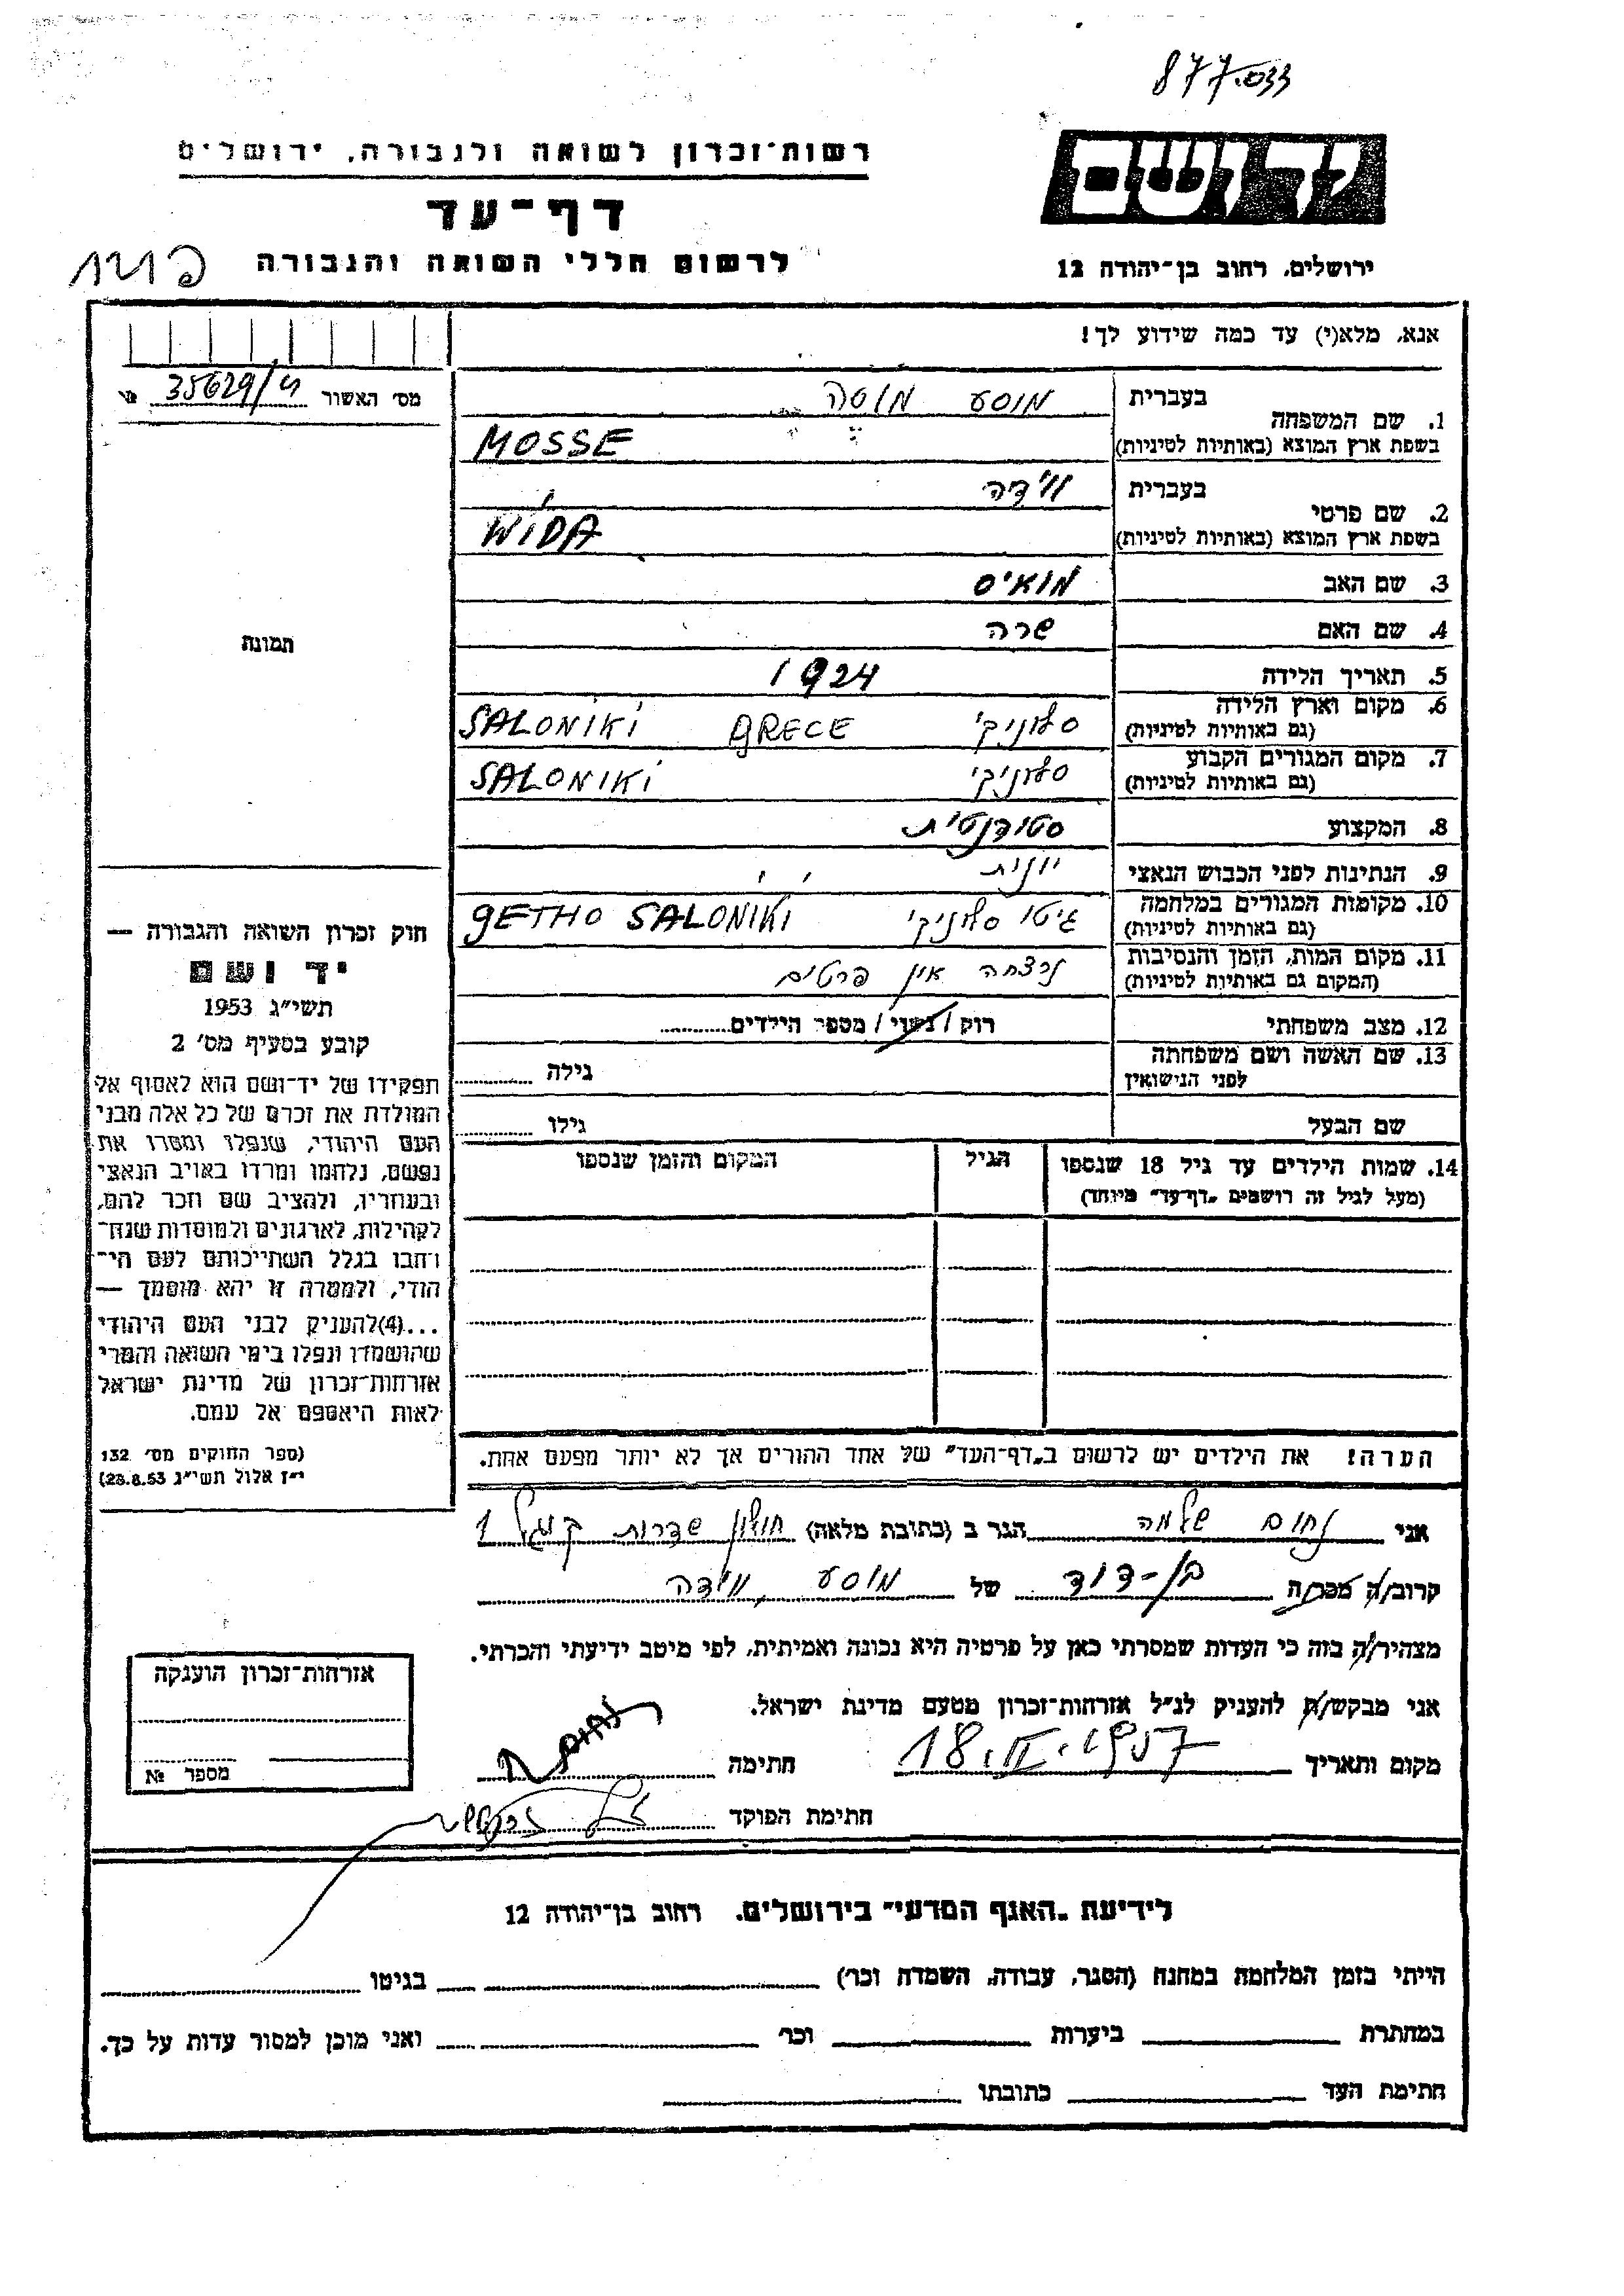 877.033
רשות-זכרון לשואה ולגבורה, ירושלים
יד ושם
דף-עד
לרשום חללי השואה והגבורה
ירושלים, רחוב בן-יהודה 12
אנא, מלא(י) עד כמה שידוע לך!
מס' האשור 35629/ № 
1. שם המשפחה בעברית מוסע מוטה
בשפת ארץ המוצא (באותיות לטיניות) MOSSE
2. שם פרטי בעברית וידה
בשפת ארץ המוצא (באותיות לטיניות) WIDA
3. שם האב מואיס
4. שם האם שרה
תמונה
5. תאריך הלידה 1924
6. מקום וארץ הלידה (גם באותיות לטיניות) סלוניקי GRECE SALONIKI
7. מקום המגורים הקבוע (גם באותיות לטיניות) סלוניקי SALONIKI
8. המקצוע סטודנטית
9. הנתינות לפני הכבוש הנאצי יוונית
10. מקומות המגורים במלחמה (גם באותיות לטיניות) גיטו סלוניקי GETHO SALONIKI
11. מקום המות, הזמן והנסיבות (המקום גם באותיות לטיניות) נרצחה אין פרטים
12. מצב משפחתי רוק / נשוי / מספר הילדים
13. שם האשה ושם משפחתה לפני הנישואין גילה
שם הבעל גילו
14. שמות הילדים עד גיל 18 שנספו הגיל המקום והזמן שנספו
(מעל לגיל זה רושמים "דף-עד" מיוחד)
חוק זכרון השואה והגבורה —
יד ושם
תשי"ג 1953
קובע בסעיף מס' 2
תפקידו של יד-ושם הוא לאסוף אל
המולדת את זכרם של כל אלה מבני
העם היהודי, שנפלו ומסרו את
נפשם, נלחמו ומרדו באויב הנאצי
ובעוזריו, ולהציב שם וזכר להם,
לקהילות, לארגונים ולמוסדות שנח-
רבו בגלל השתייכותם לעם הי-
הודי, ולמטרה זו יהא מוסמך —
...(4) להעניק לבני העם היהודי
שהושמדו ונפלו בימי השואה והמרי
אזרחות-זכרון של מדינת ישראל
לאות היאספם אל עמם.
(ספר החוקים מס' 132
י"ז אלול תשי"ג 28.8.53)
הערה! את הילדים יש לרשום ב"דף-העד" של אחד ההורים אך לא יותר מפעם אחת.
אני נחום שלמה הגר ב (כתובת מלאה) חולון שדרות קוגל 1
קרוב/ה מכר/ה בן-דוד של מוסע וידה
מצהיר/ה בזה כי העדות שמסרתי כאן על פרטיה היא נכונה ואמיתית, לפי מיטב ידיעתי והכרתי.
אני מבקש/ת להעניק לנ"ל אזרחות-זכרון מטעם מדינת ישראל.
מקום ותאריך 18.II.1957 חתימה
חתימת הפוקד
אזרחות-זכרון הוענקה
מספר №
לידיעת "האגף המדעי" בירושלים, רחוב בן-יהודה 12
הייתי בזמן המלחמה במחנה (הסגר, עבודה, השמדה וכו') בגיטו
במחתרת ביערות וכו' ואני מוכן למסור עדות על כך.
חתימת העד כתובתו